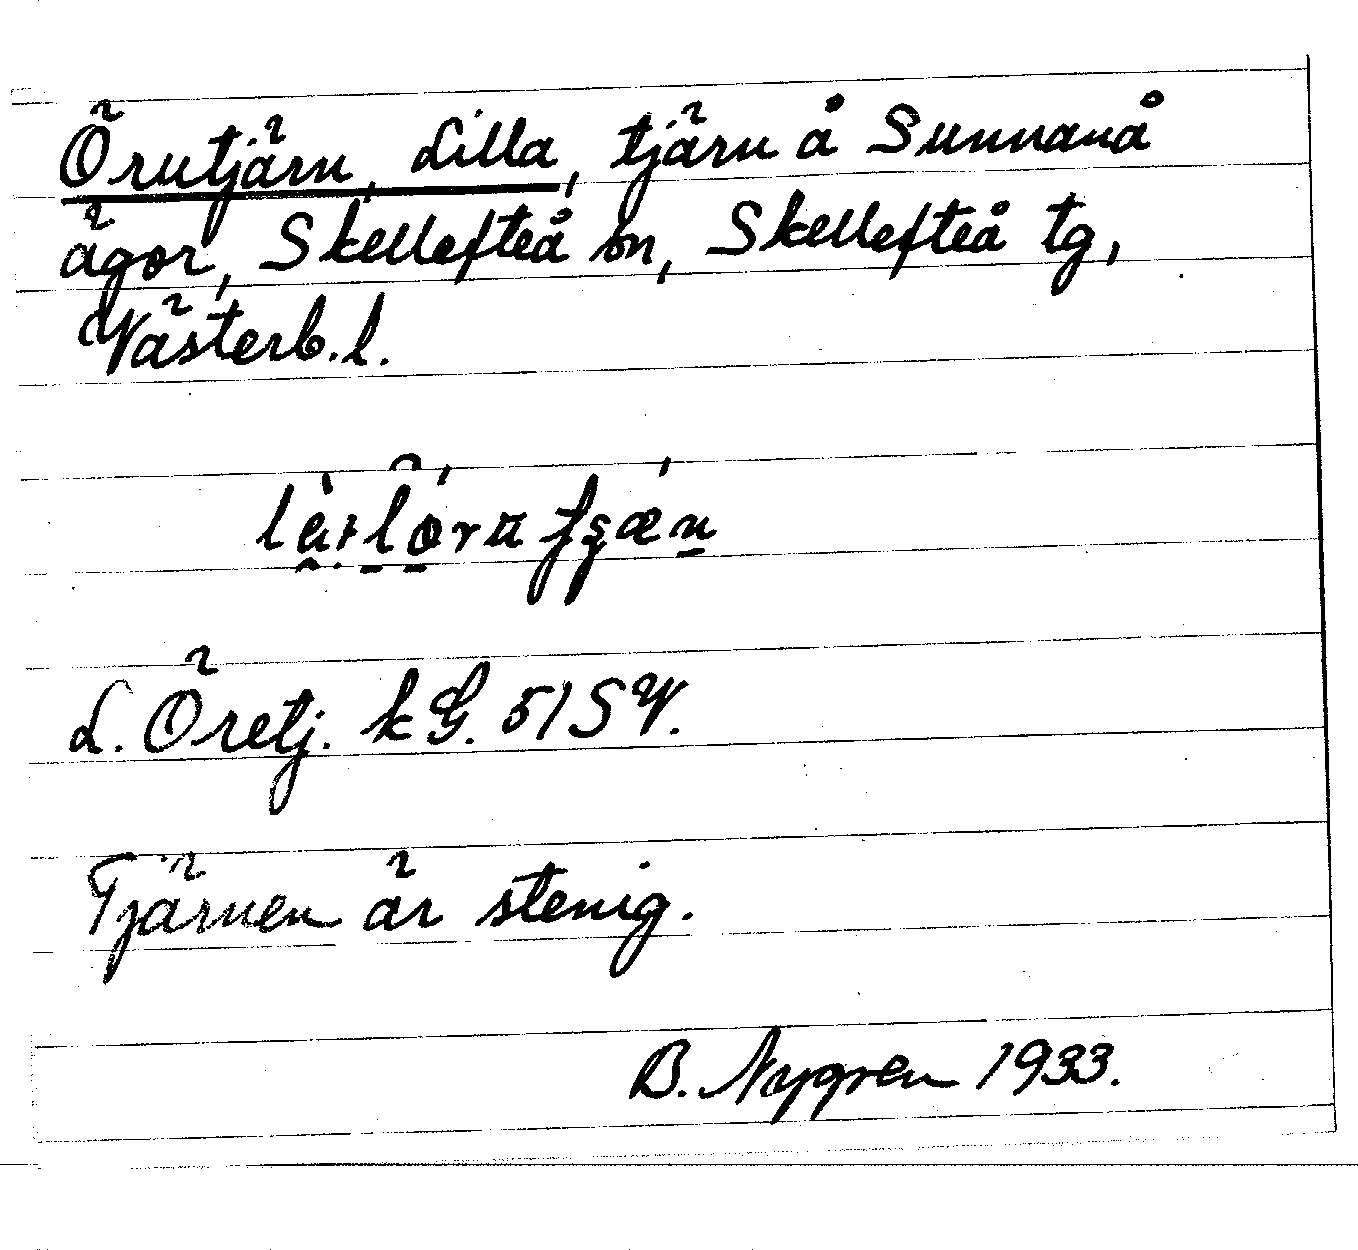 Örutjärn, Lilla, tjärn å Sunnanå
ägor, Skellefteå sn, Skellefteå tg,
Västerb. l.
L. Öretj. k G. 51 SV.
Tjärnen är stenig.
B. Nygren 1933.